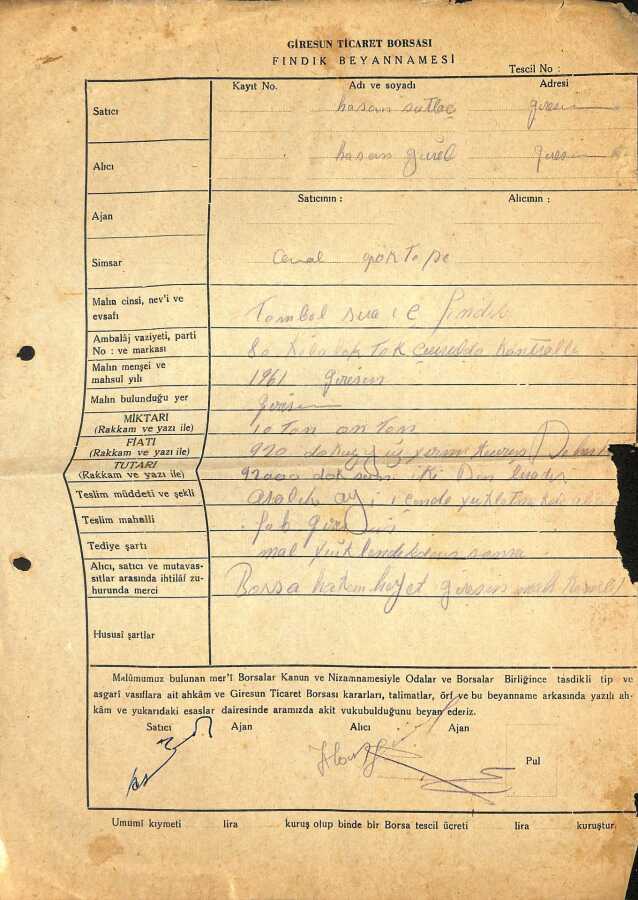 GİRESUN TİCARET BORSASI
FINDIK BEYANNAMESİ
Tescil No :
Kayıt No. Adı ve soyadı Adresi
Satıcı hasan sutlaç giresun
Alıcı hasan gürel giresun
Satıcının : Alıcının :
Ajan
Simsar Cemal göktepe
Malın cinsi, nev'i ve
evsafı
Tombul fındık
Ambalâj vaziyeti, parti
No : ve markası
80 kiloluk tek çuvalda
Malın menşei ve
mahsul yılı
1961 giresun
Malın bulunduğu yer giresun
MİKTARI
(Rakkam ve yazı ile)
10 Ton on Ton
FİATI
(Rakkam ve yazı ile)
920 dokuz yüz yirmi kuruş
TUTARI
(Rakkam ve yazı ile)
92000 doksan iki bin liradır
Teslim müddeti ve şekli aralık ayı içinde
Teslim mahalli fob
Tediye şartı mal yüklendikden sonra
Alıcı, satıcı ve mutavas-
sıtlar arasında ihtilâf zu-
hurunda merci
Borsa hakem heyet giresun
Hususî şartlar
Malûmumuz bulunan mer'î Borsalar Kanun ve Nizamnamesiyle Odalar ve Borsalar Birliğince tasdikli tip ve
asgarî vasıflara ait ahkâm ve Giresun Ticaret Borsası kararları, talimatlar, örf ve bu beyanname arkasında yazılı ah-
kâm ve yukarıdaki esaslar dairesinde aramızda akit vukubulduğunu beyan ederiz.
Satıcı Ajan Alıcı Ajan
Pul
Umumî kıymeti lira kuruş olup binde bir Borsa tescil ücreti lira kuruştur.